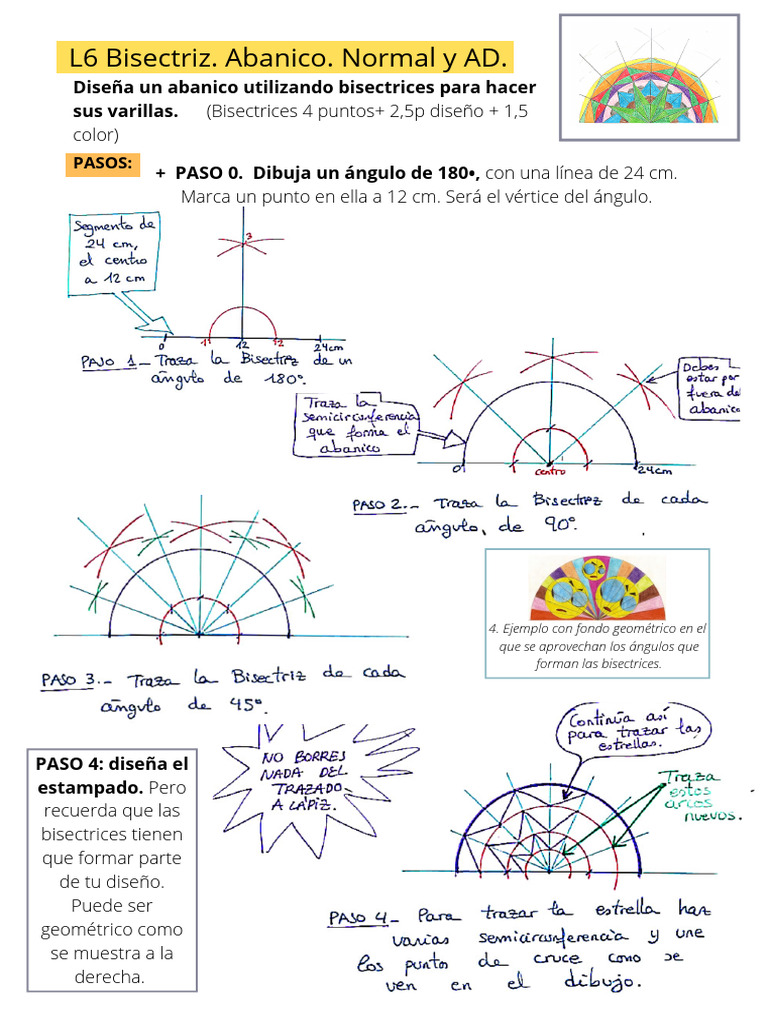 L6 Bisectriz. Abanico. Normal y AD.
Diseña un abanico utilizando bisectrices para hacer
sus varillas. (Bisectrices 4 puntos+ 2,5p diseño + 1,5
color)
PASOS:
+ PASO 0. Dibuja un ángulo de 180•, con una línea de 24 cm.
Marca un punto en ella a 12 cm. Será el vértice del ángulo.
Segmento de
24 cm,
el centro
a 12 cm
3
0
1
12
2
24cm
PASO 1 – Traza la Bisectriz de un
ángulo de 180º.
Traza la
semicircunferencia
que forma el
abanico
Debes
estar por
fuera del
abanico
0
centro
24cm
PASO 2.- Traza la Bisectriz de cada
ángulo, de 90º.
4. Ejemplo con fondo geométrico en el
que se aprovechan los ángulos que
forman las bisectrices.
PASO 3.- Traza la Bisectriz de cada
ángulo de 45º.
PASO 4: diseña el
estampado. Pero
recuerda que las
bisectrices tienen
que formar parte
de tu diseño.
Puede ser
geométrico como
se muestra a la
derecha.
NO BORRES
NADA DEL
TRAZADO
A LÁPIZ.
Continúa así
para trazar las
estrellas.
Traza
estos
arcos
nuevos.
PASO 4 – Para trazar la estrella haz
varias semicircunferencia y une
los puntos de cruce como se
ven en el dibujo.